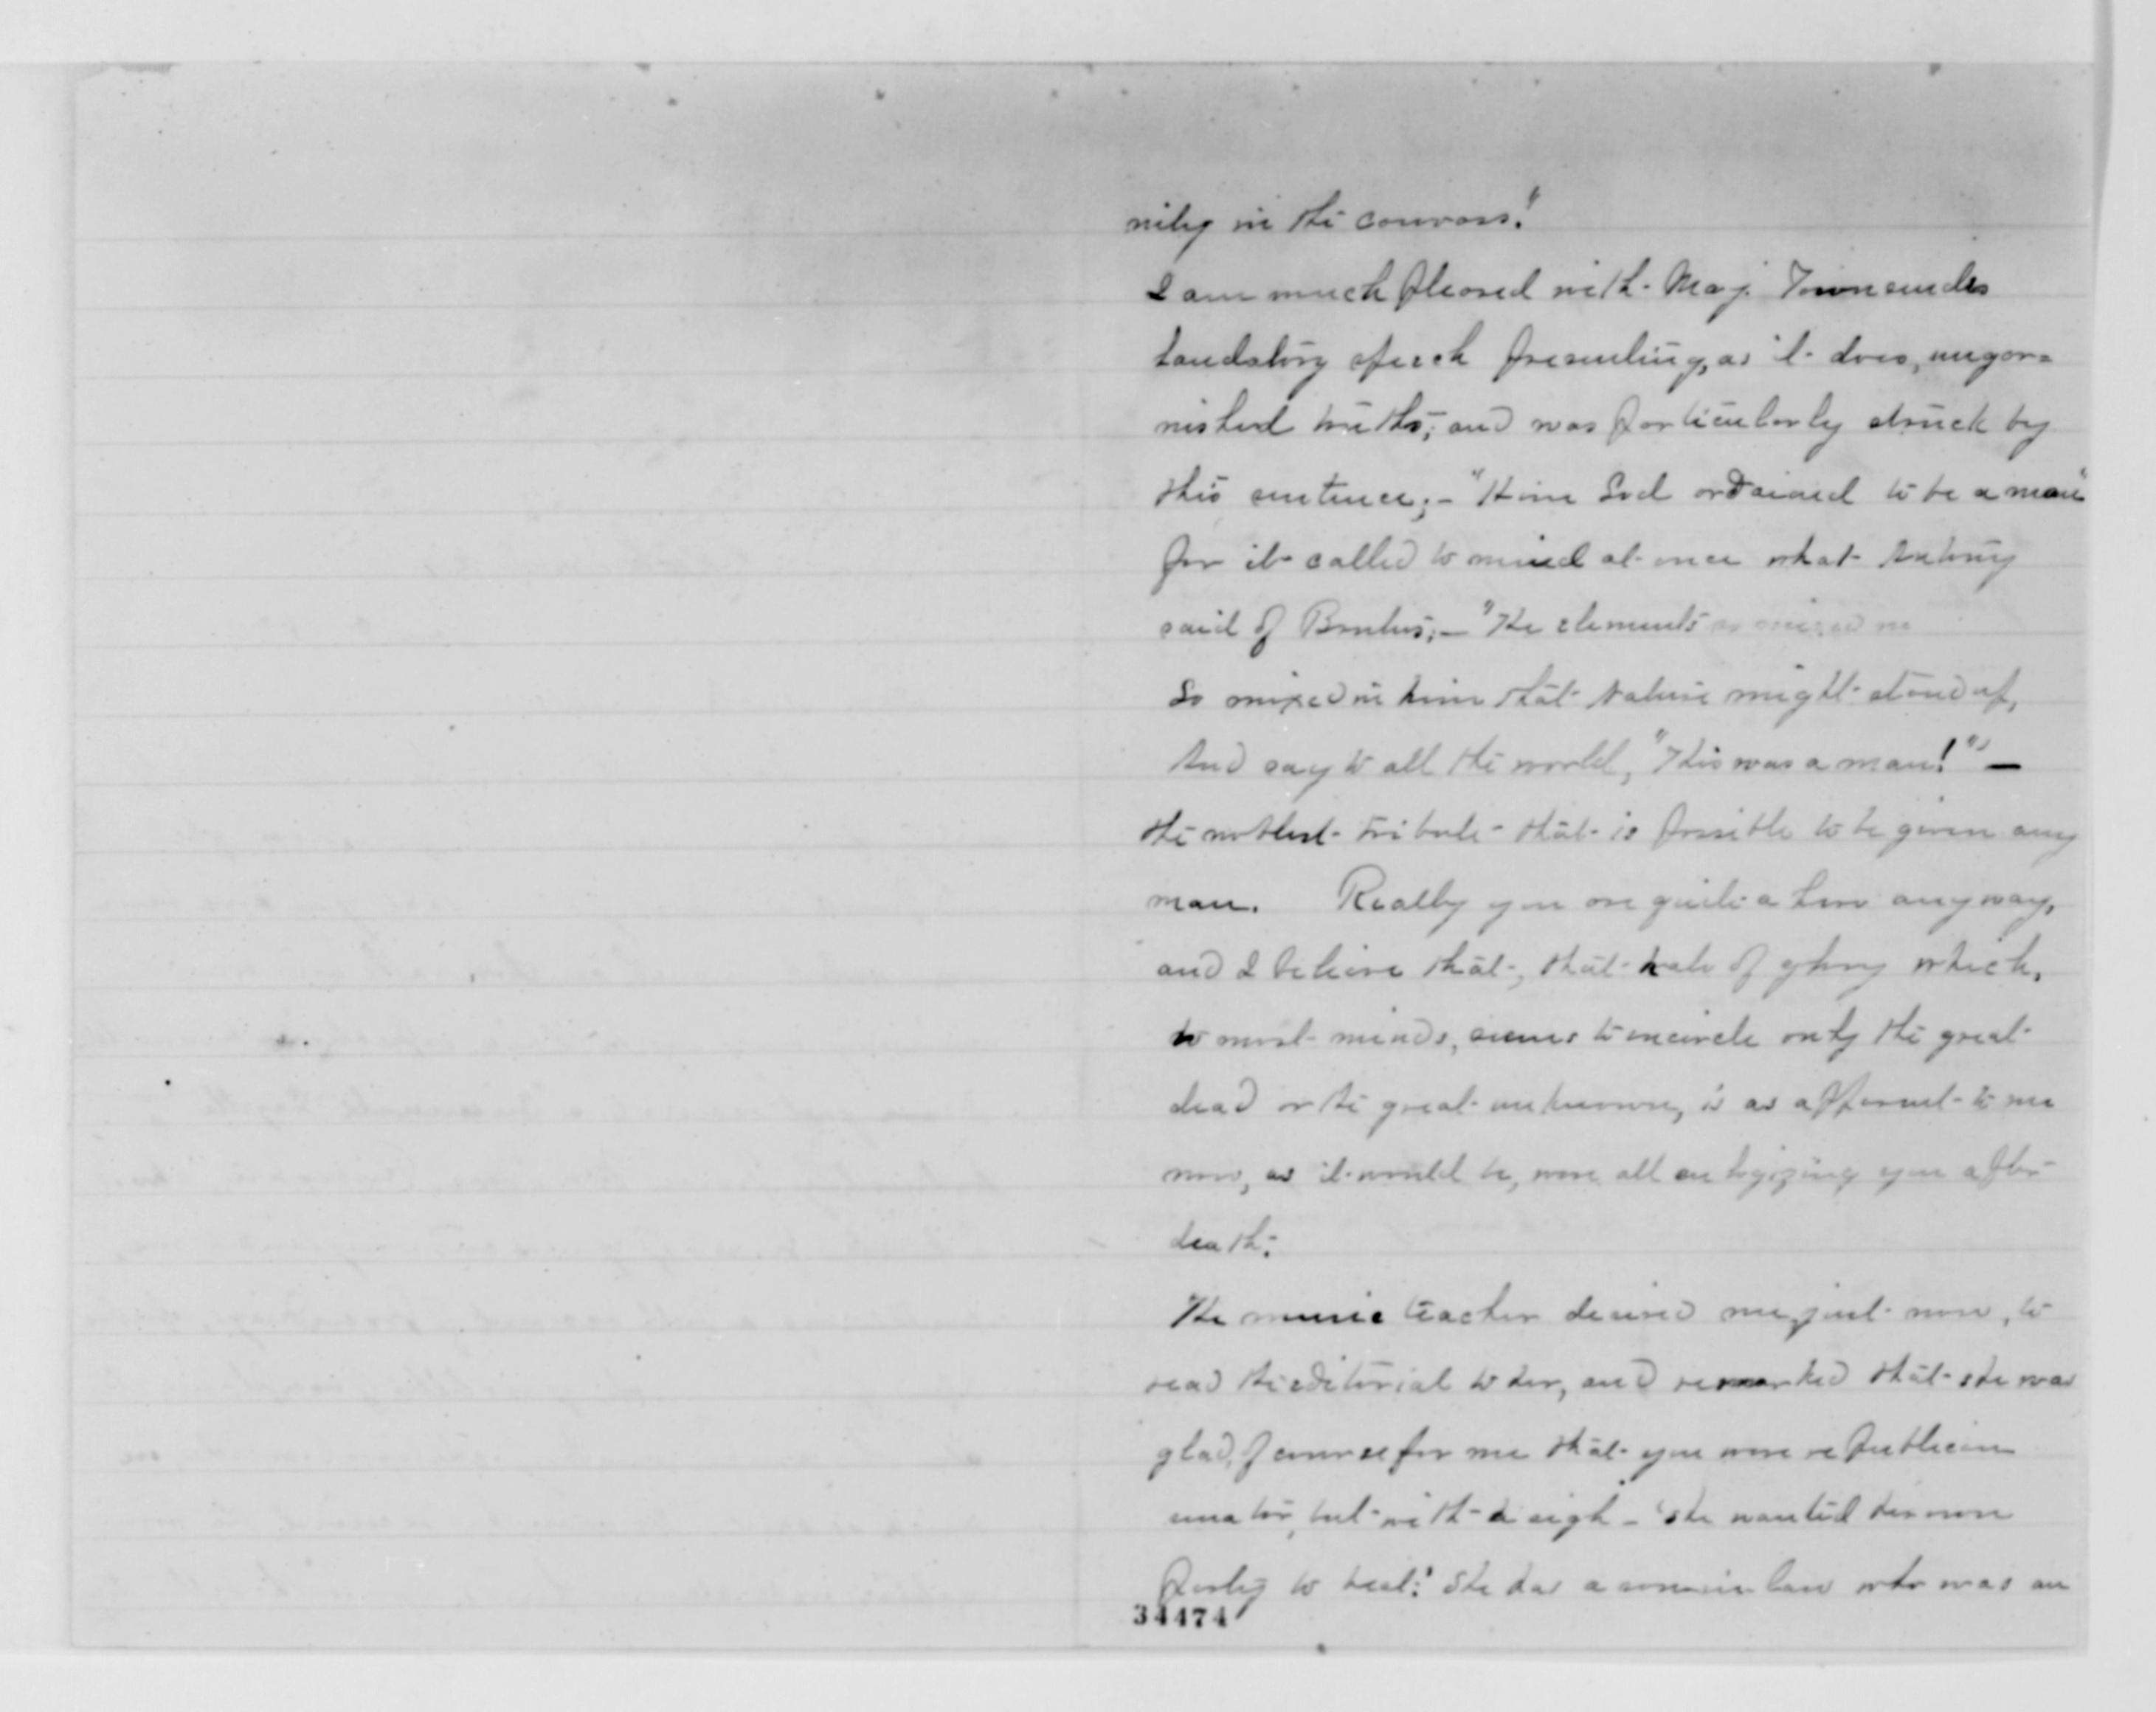 nity in the canvass."
I am much pleased with Maj. Townsends
laudatory speech presenting, as it does, ungar=
nished truths; and was particularly struck by
this sentence; - "Him God ordained to be a man"
for it called to mind at once what Antony
said of Brutus; - "The elements so mixed
So mixed in him that Nature might stand up,
And say to all the world, "This was a man!"" -
the noblest tribute that is possible to be given any
man. Really you are quite a hero anyway,
and I believe that, that halo of glory which,
to most minds, seems to encircle only the great
dead or the great unknown, is as apparent to me
now, as it would be, were all eulogizing you after
death.
The music teacher desired me, just now, to
read the editorial to her, and remarked that she was
glad, of course for me that you were republican
senator, but with a sigh - "she wanted her own
party to beat." She has a son-in-law who was an
34474